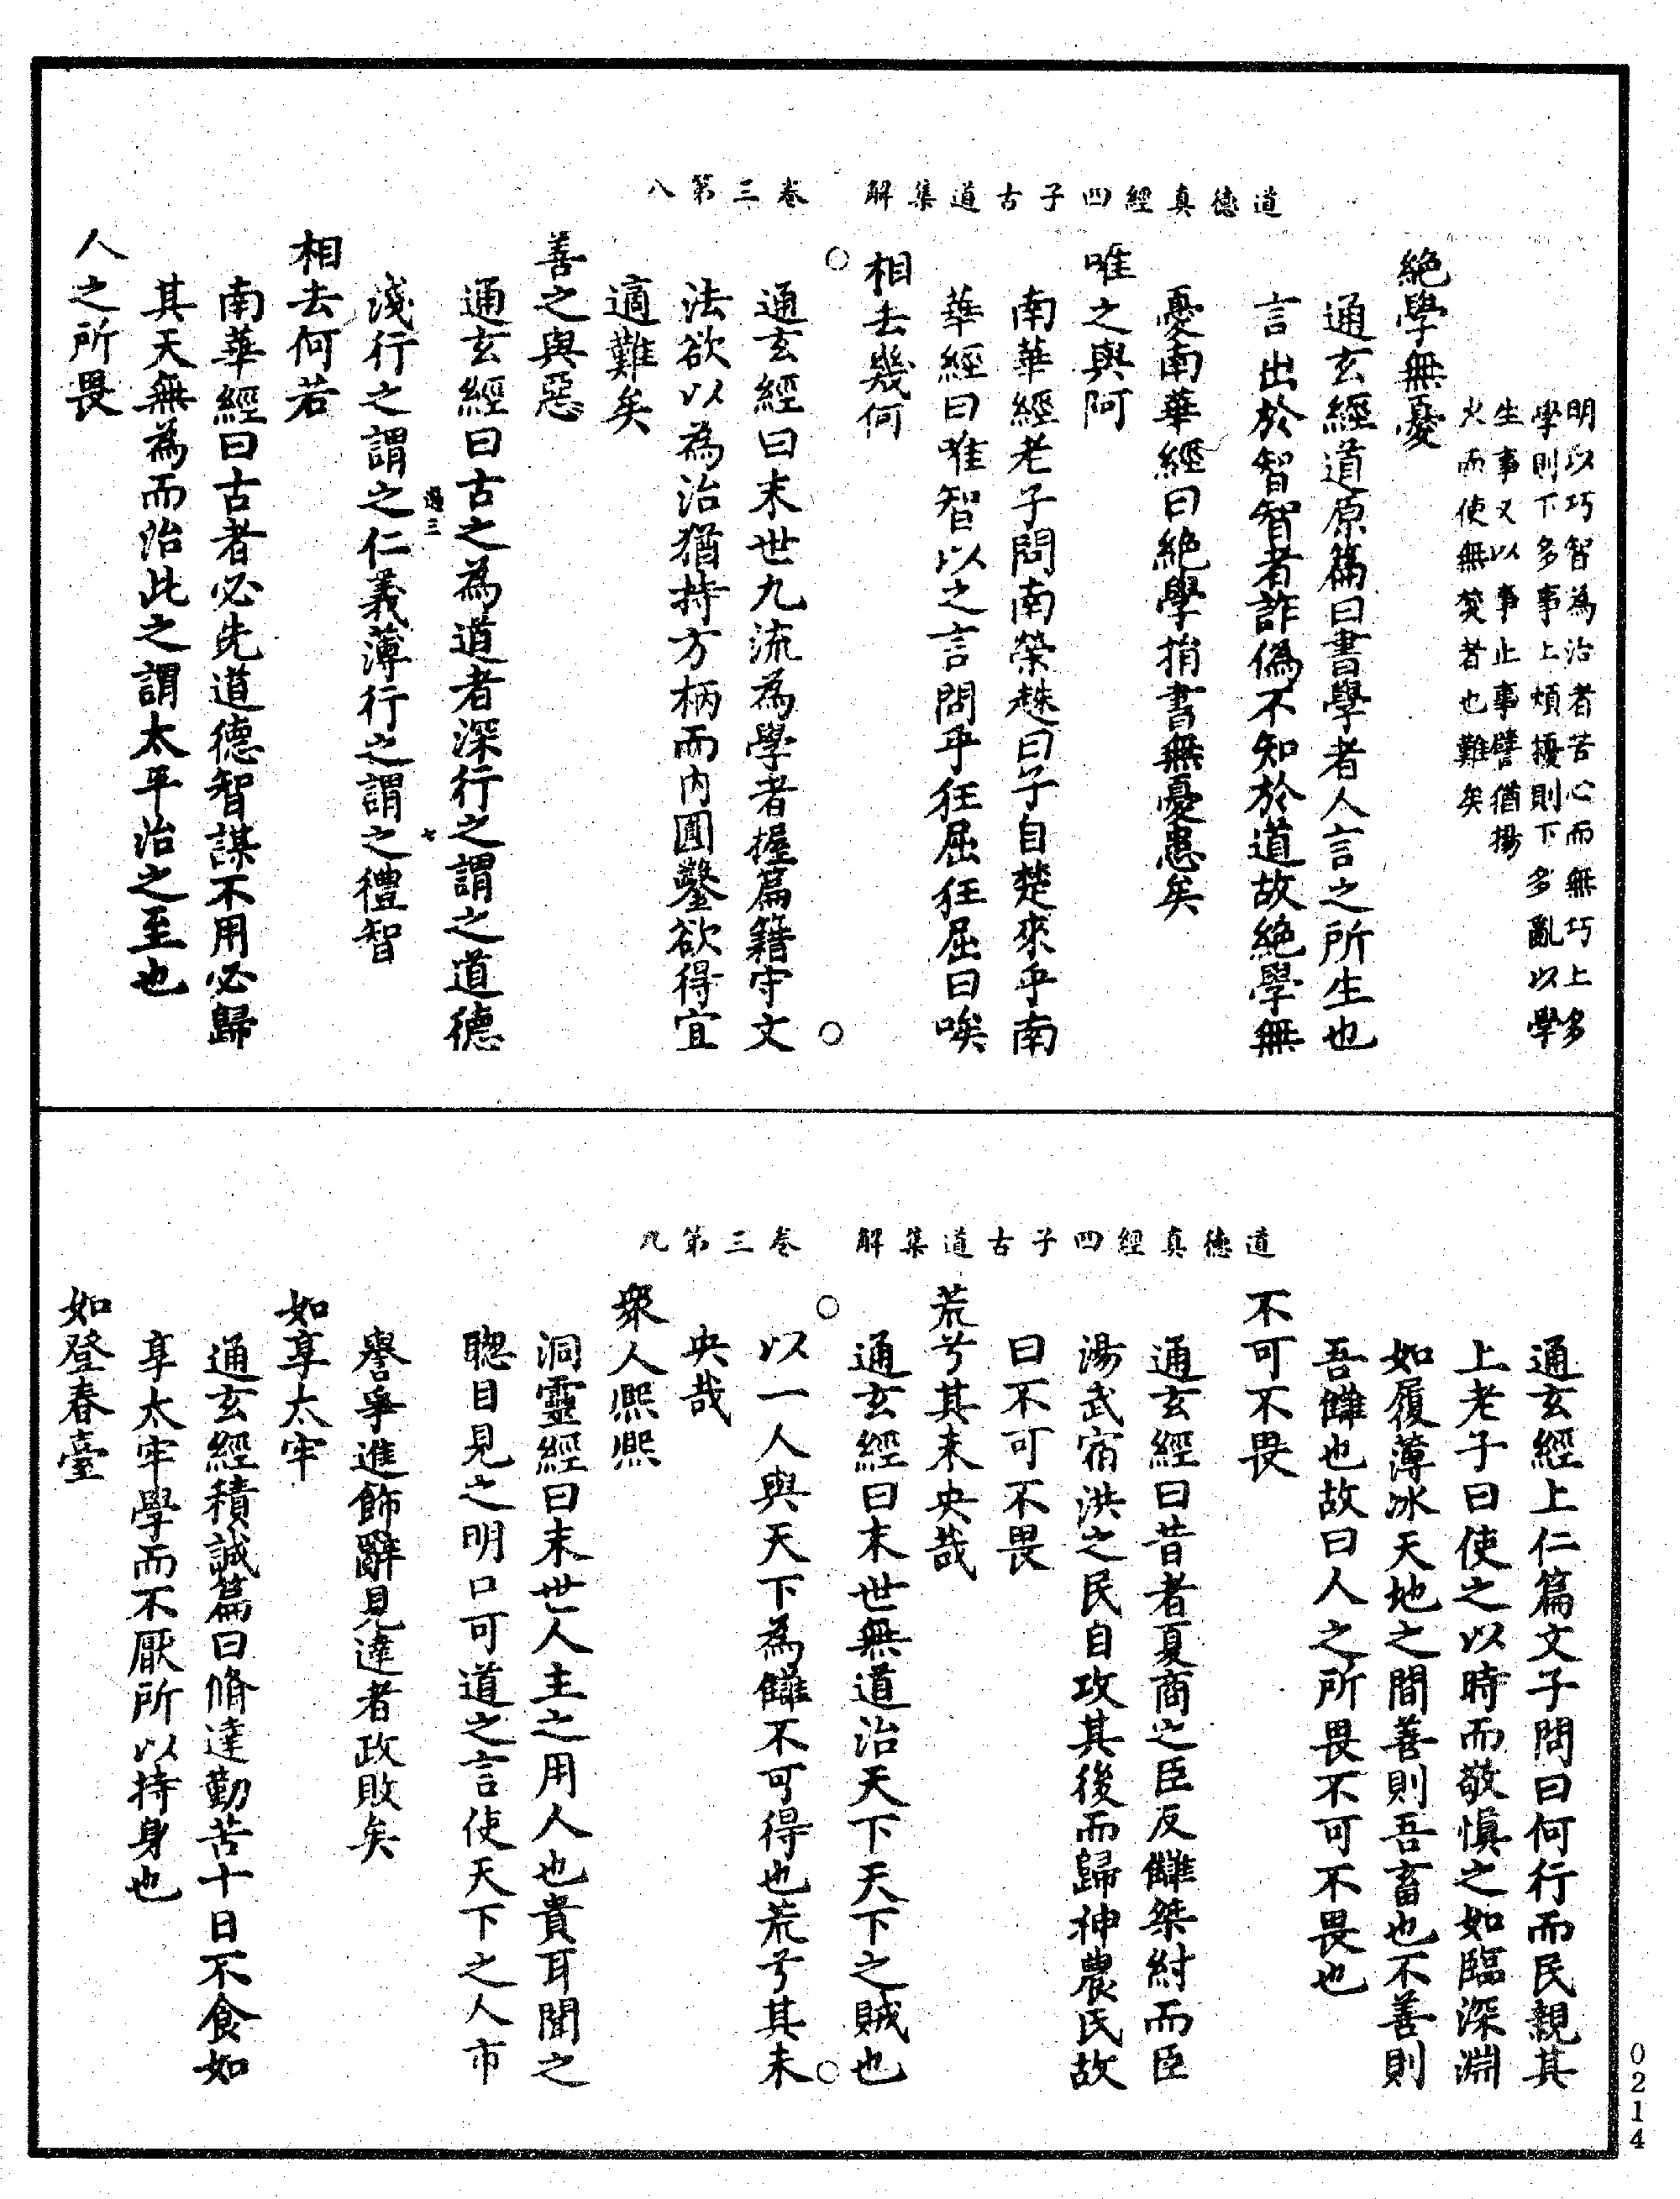 道德真經四子古道集解　卷三第八
明以巧智為治者苦心而無巧上多
學則下多事上煩擾則下多亂以學
生事又以事止事譬猶揚
火而使無焚者也難矣
絕學無憂
通玄經道原篇曰書學者人言之所生也
言出於智智者詐偽不知於道故絕學無
憂南華經曰絕學捐書無憂患矣
唯之與阿
南華經老子問南榮趎曰子自楚來乎南
華經曰唯智以之言問乎狂屈狂屈曰唉
相去幾何
通玄經曰末世九流為學者握篇籍守文
法欲以為治猶持方柄而內圓鑿欲得宜
適難矣
善之與惡
通玄經曰古之為道者深行之謂之道德
過三　七
淺行之謂之仁義薄行之謂之禮智
相去何若
南華經曰古者必先道德智謀不用必歸
其天無為而治此之謂太平治之至也
人之所畏
道德真經四子古道集解　卷三第九
通玄經上仁篇文子問曰何行而民親其
上老子曰使之以時而敬慎之如臨深淵
如履薄冰天地之間善則吾畜也不善則
吾讎也故曰人之所畏不可不畏也
不可不畏
通玄經曰昔者夏商之臣反讎桀紂而臣
湯武宿洪之民自攻其後而歸神農氏故
曰不可不畏
荒兮其未央哉
通玄經曰末世無道治天下天下之賊也
以一人與天下為讎不可得也荒兮其未
央哉
衆人熙熙
洞靈經曰末世人主之用人也貴耳聞之
聰目見之明口可道之言使天下之人市
譽爭進飾辭見達者政敗矣
如享太牢
通玄經積誠篇曰脩達勤苦十日不食如
享太牢學而不厭所以持身也
如登春臺
0214